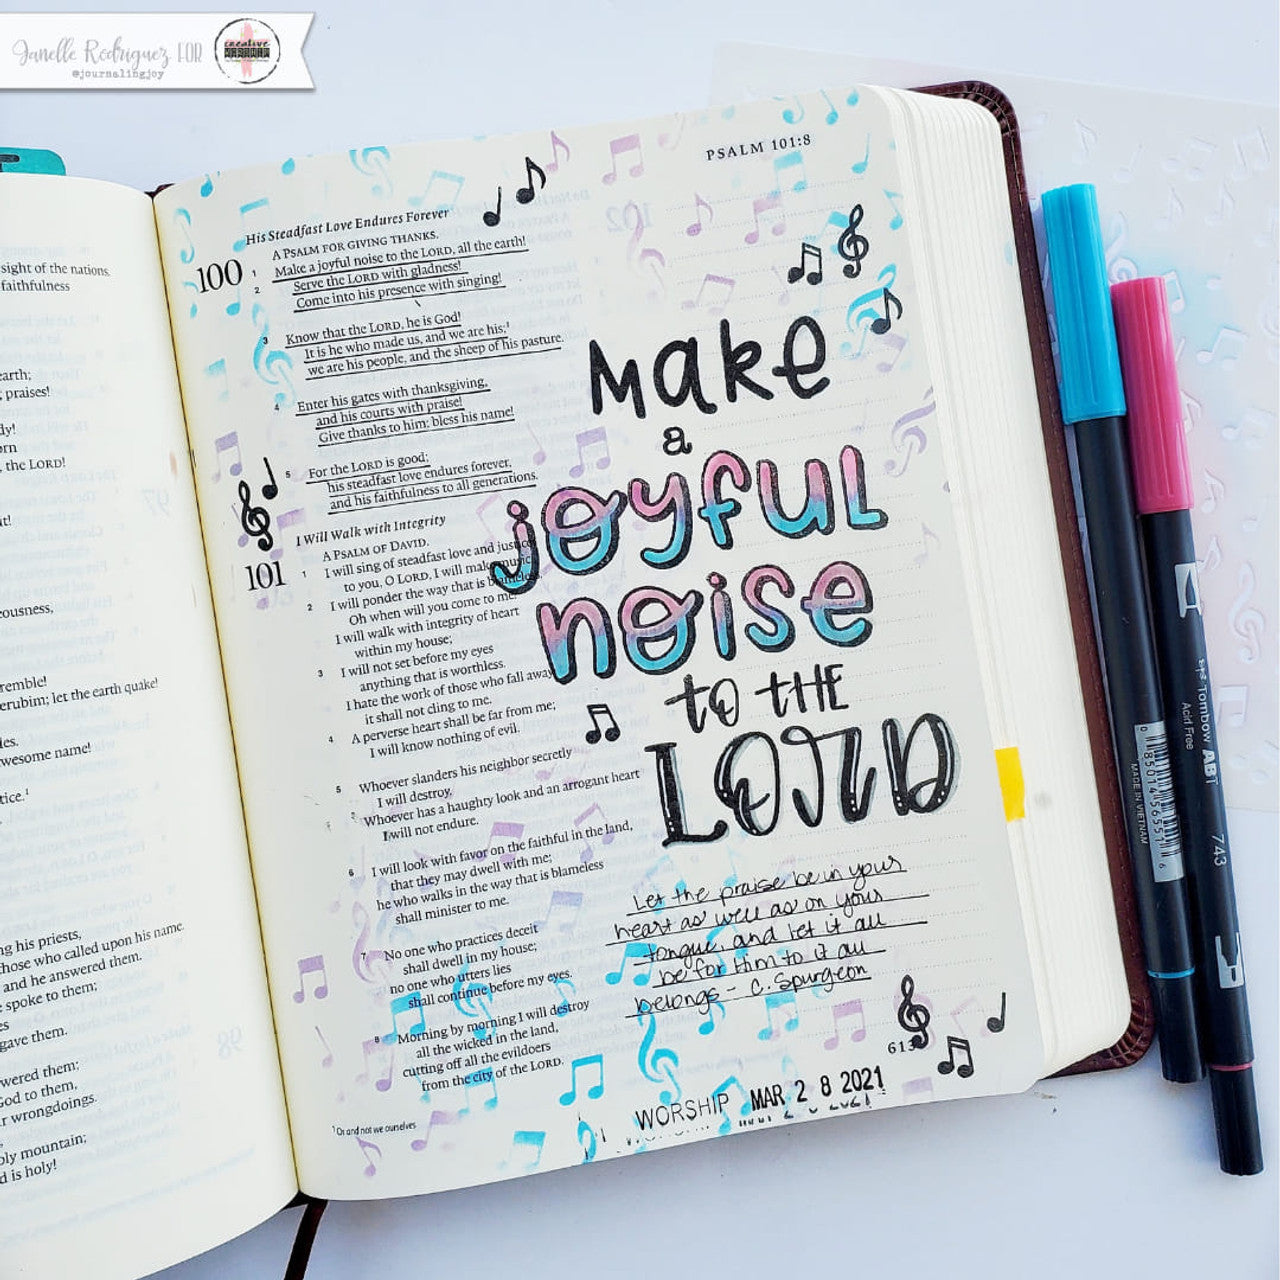 Janelle Rodriguez FOR
@journalingjoy
creative
WORSHIP
sight of the nations.
faithfulness
earth;
praises!
the LORD!
eousness,
remble!
erubim; let the earth quake!
wesome name!
tice.¹
ng his priests,
hose who called upon his name.
and he answered them.
spoke to them;
gave them.
wered them:
God to them,
r wrongdoings.
oly mountain;
d is holy!
PSALM 101:8
His Steadfast Love Endures Forever
A PSALM FOR GIVING THANKS.
100 1 Make a joyful noise to the LORD, all the earth!
2 Serve the LORD with gladness!
Come into his presence with singing!
3 Know that the LORD, he is God!
It is he who made us, and we are his;¹
we are his people, and the sheep of his pasture.
4 Enter his gates with thanksgiving,
and his courts with praise!
Give thanks to him; bless his name!
5 For the LORD is good;
his steadfast love endures forever,
and his faithfulness to all generations.
I Will Walk with Integrity
A PSALM OF DAVID.
101 1 I will sing of steadfast love and justice;
to you, O LORD, I will make music.
2 I will ponder the way that is blameless.
Oh when will you come to me?
I will walk with integrity of heart
within my house;
3 I will not set before my eyes
anything that is worthless.
I hate the work of those who fall away;
it shall not cling to me.
4 A perverse heart shall be far from me;
I will know nothing of evil.
5 Whoever slanders his neighbor secretly
I will destroy.
Whoever has a haughty look and an arrogant heart
I will not endure.
6 I will look with favor on the faithful in the land,
that they may dwell with me;
he who walks in the way that is blameless
shall minister to me.
7 No one who practices deceit
shall dwell in my house;
no one who utters lies
shall continue before my eyes.
8 Morning by morning I will destroy
all the wicked in the land,
cutting off all the evildoers
from the city of the LORD.
¹ Or and not we ourselves
Make
a
joyful
noise
to the
LORD
Let the praise be in your
heart as well as on your
tongue, and let it all
be for Him to it all
belongs - C. Spurgeon
613
WORSHIP MAR 28 2021
Tombow ABT
Acid Free
743
MADE IN VIETNAM